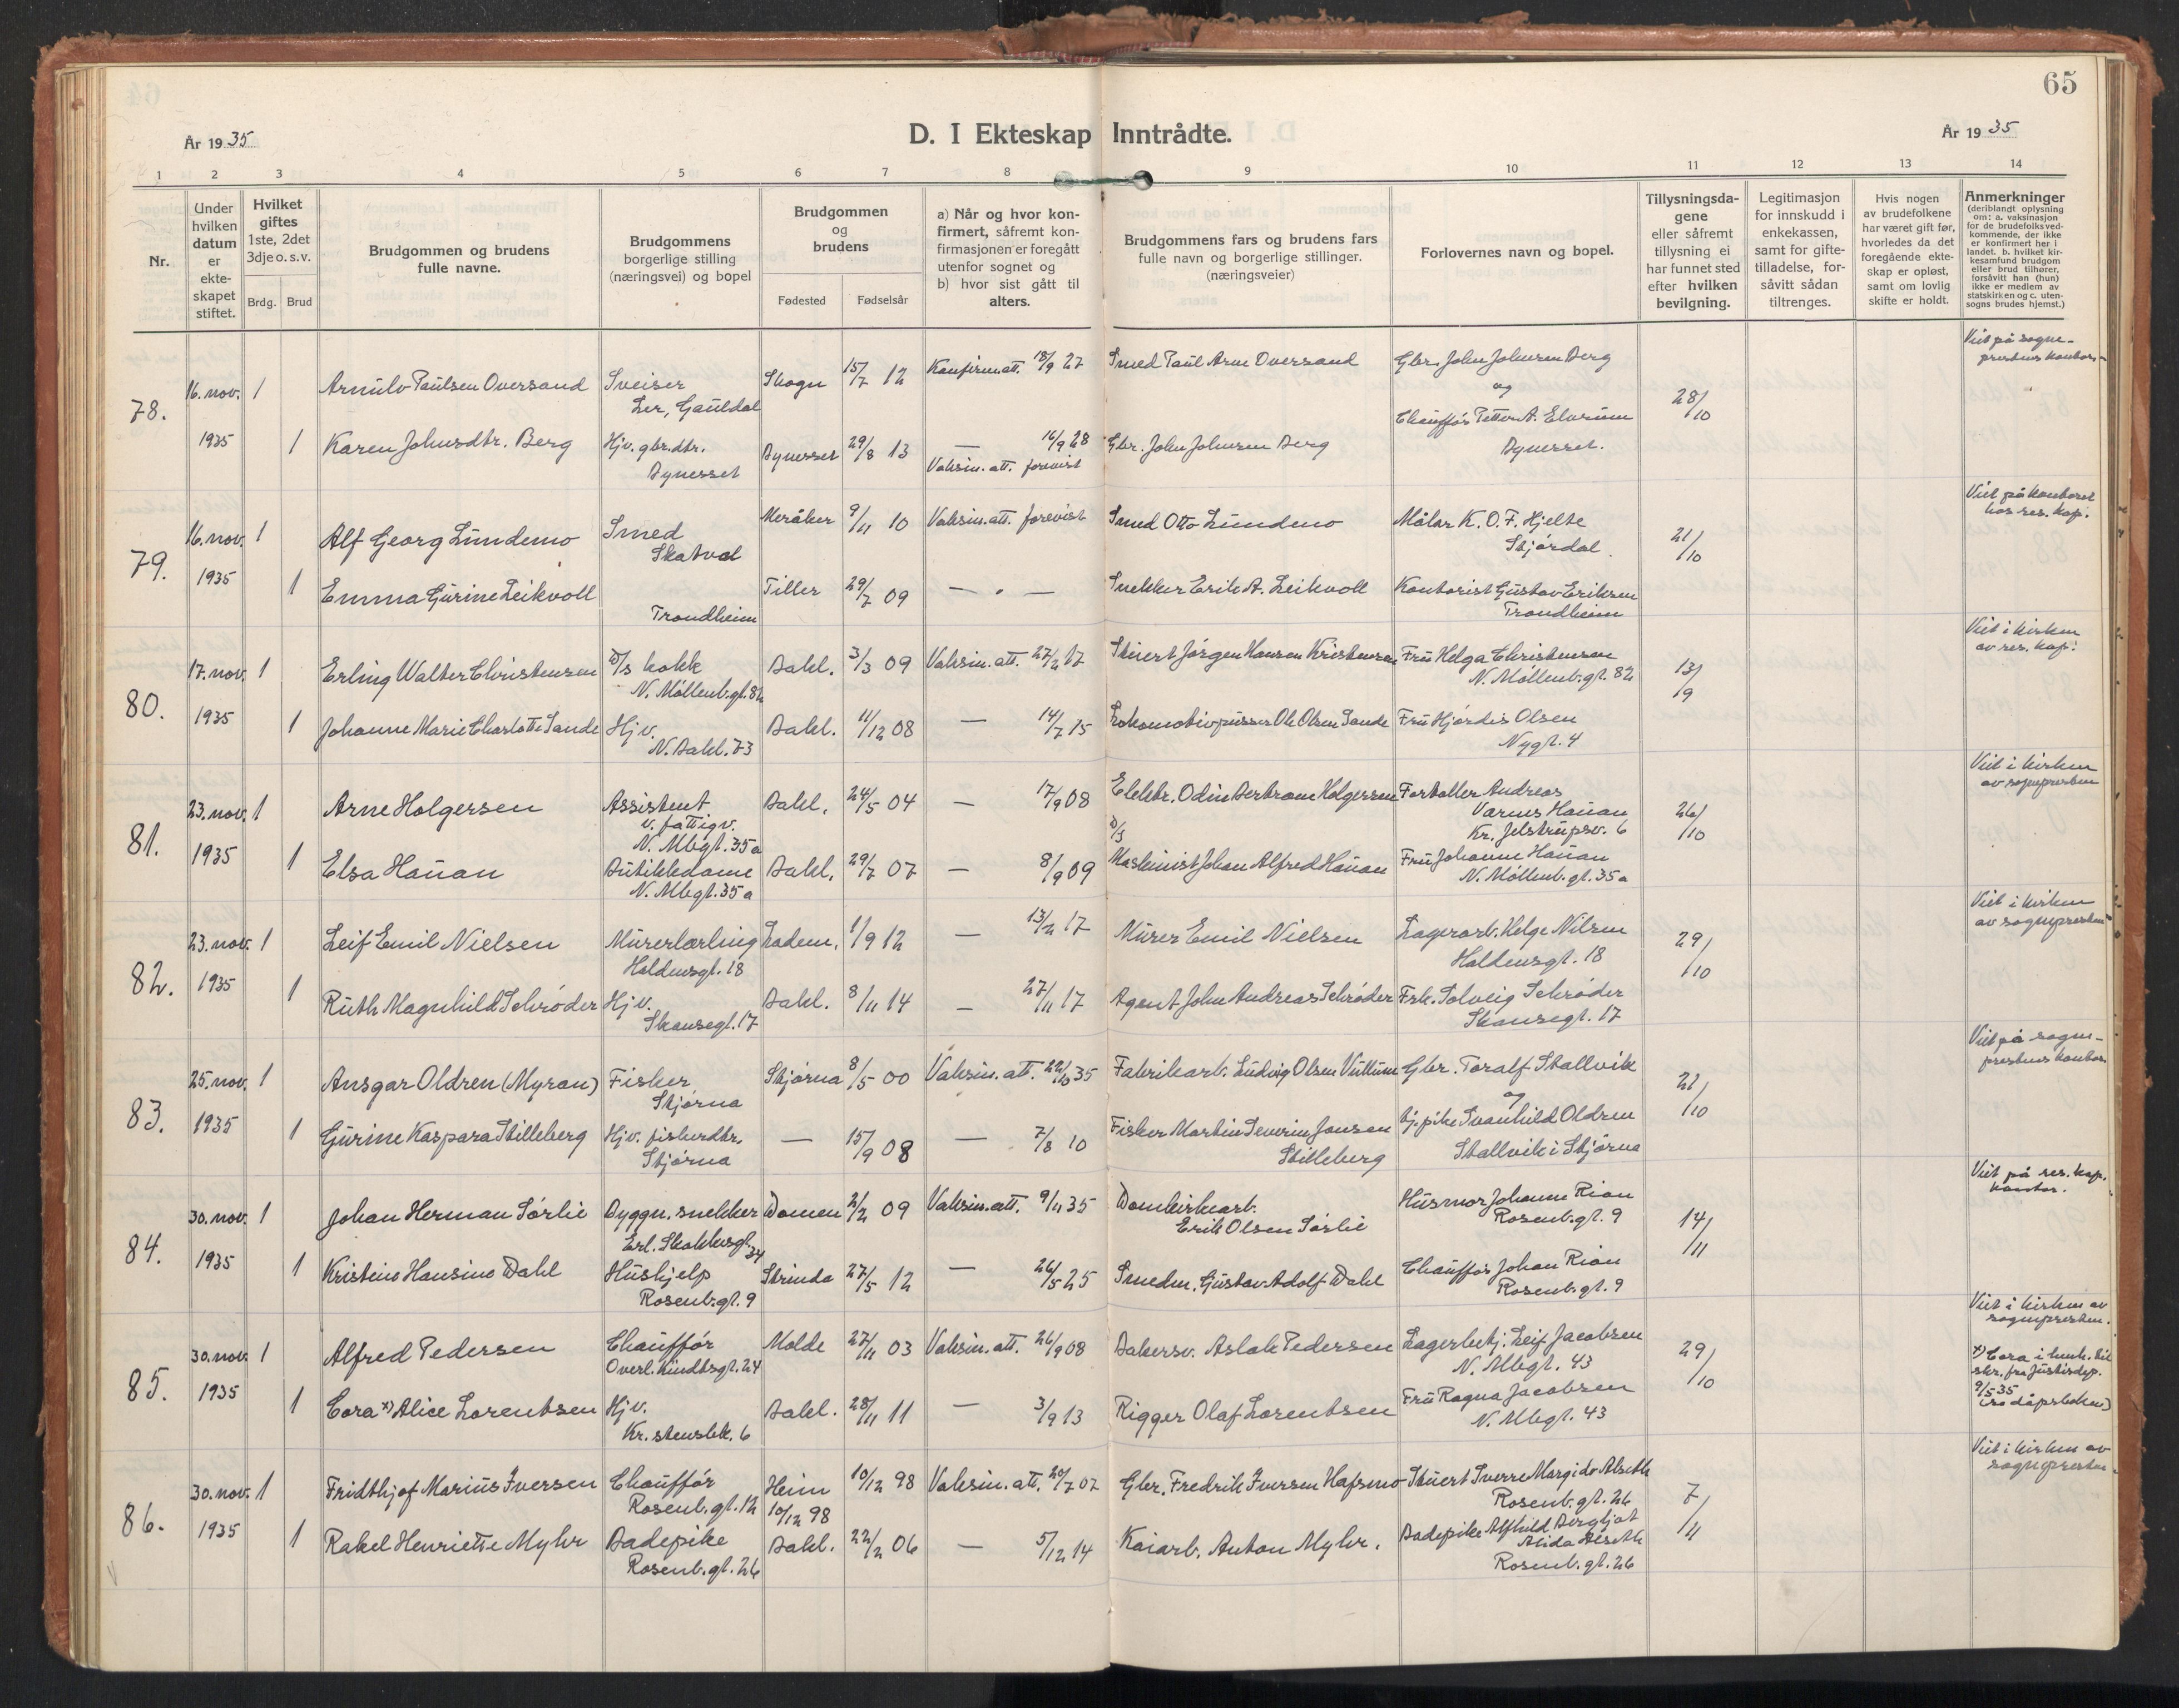 65
År 1935
D. I Ekteskap Inntrådte.
År 1935
1 2 3 4 5 6 7 8 9 10 11 12 13 14
Nr.
Under hvilken datum er ekte-skapet stiftet.
Hvilket giftes 1ste, 2det 3dje o. s. v.
Brdg. Brud
Brudgommen og brudens fulle navne.
Brudgommens borgerlige stilling (næringsvei) og bopel
Brudgommen og brudens
Fødested Fødselsår
a) Når og hvor kon-firmert, såfremt kon-firmasjonen er foregått utenfor sognet og b) hvor sist gått til alters.
Brudgommens fars og brudens fars fulle navn og borgerlige stillinger. (næringsveier)
Forlovernes navn og bopel.
Tillysningsda-gene eller såfremt tillysning ei har funnet sted efter hvilken bevilgning.
Legitimasjon for innskudd i enkekassen, samt for gifte-tilladelse, for-såvitt sådan tiltrenges.
Hvis nogen av brudefolkene har været gift før, hvorledes da det foregående ekte-skap er opløst, samt om lovlig skifte er holdt.
Anmerkninger (deriblandt oplysning om: a. vaksinasjon for de brudefolks ved-kommende, der ikke er konfirmert her i landet. b. hvilket kir-kesamfund brudgom eller brud tilhører, forsåvitt han (hun) ikke er medlem av statskirken og c. uten-sogns brudes hjemst.)
78. 16. nov. 1 Arnulv Paulsen Oversand Sveiser Ler, Gauldal Skogn 15/7 12 Konfirm.att. 18/9 27 Smed Paul Arne Oversand Gbr. John Johnsen Berg og 28/10 Viet på sogne-prestens kontor
1935 1 Karen Johnsdtr. Berg Hjv. gbr.dtr. Bynesset Bynesset 29/8 13 — 16/9 28 Vaksin.att. forevist Gbr. John Johnsen Berg Chauffør Petter A. Elvrum Bynesset.
79. 16. nov. 1 Alf Georg Lundemo Smed Skatval Meråker 9/11 10 Vaksin.att. forevist Smed Otto Lundemo Målar K. O. F. Hjelte Stjørdal. 21/10 Viet på kontoret hos res. kap.
1935 1 Emma Gurine Leikvoll Trondheim Tiller 29/7 09 — " — Snekker Erik A. Leikvoll Kontorist Gustav Eriksen Trondheim
80. 17. nov. 1 Erling Walter Christensen D/S kokk N. Møllenb.gt. 82 Bakl. 3/3 09 Vaksin.att. 27/2 17 Stuert Jørgen Hansen Kristensen Fru Helga Christensen N. Møllenb.gt. 82 13/9 Viet i kirken av res. kap.
1935 1 Johanne Marie Charlotte Sande Hjv. N. Bakl. 73 Bakl. 11/12 08 — 14/7 15 Lokomotivpusser Ole Olsen Sande Fru Hjørdis Olsen Nygt. 4
81. 23. nov. 1 Arne Holgersen Assistent v. fattigv. N. Mbgt. 35a Bakl. 24/5 04 — 17/9 08 Elektr. Odin Bertram Holgersen Forvalter Andreas Varnes Hauan Kr. Jelstrupsv. 6 26/10 Viet i kirken av sognepresten
1935 1 Elsa Hauan Butikkdame N. Mbgt. 35a Bakl. 29/7 07 — 8/9 09 D/S Maskinist Johan Alfred Hauan Fru Johanne Hauan N. Møllenb.gt. 35a
82. 23. nov. 1 Leif Emil Nielsen Murerlærling Haldensgt. 18 Ladem. 1/9 12 — 13/2 17 Murer Emil Nielsen Lagerarb. Helge Nilsen Haldensgt. 18 29/10 Viet i kirken av sognepresten
1935 1 Ruth Magnhild Schrøder Hjv. Skansegt. 17 Bakl. 8/11 14 — 27/11 17 Agent John Andreas Schrøder Frk. Solveig Schrøder Skansegt. 17
83. 25. nov. 1 Ansgar Oldren (Myran) Fisker Stjørna Stjørna 8/5 00 Vaksin.att. 22/10 35 Fabrikarb. Ludvig Olsen Vuttum Gbr. Toralf Stallvik og 21/10 Viet på sogne-prestens kontor
1935 1 Gurine Kaspara Stilleberg Hjv. fiskerdtr. Stjørna — 15/9 08 — 7/8 10 Fisker Martin Severin Jansen Stilleberg tj.pike Svanhild Oldren Stallvik i Stjørna
84. 30. nov. 1 Johan Herman Sørlie Byggn. snekker Erl. Skakkesgt. 34 Domen 2/2 09 Vaksin.att. 9/11 35 Domkirkearb. Erik Olsen Sørlie Husmor Johanne Rian Rosenb.gt. 9 14/11 Viet på res. kap. kontor.
1935 1 Kristine Hansine Dahl Hushjelp Rosenb.gt. 9 Strinda 27/5 12 — 26/5 25 Smedm. Gustav Adolf Dahl Chauffør Johan Rian Rosenb.gt. 9
85. 30. nov. 1 Alfred Pedersen Chauffør Overl. Kindtsgt. 24 Molde 27/11 03 Vaksin.att. 26/9 08 Bakersv. Aslak Pedersen Lagerbetj. Leif Jacobsen N. Mbgt. 43 29/10 Viet i kirken av sognepresten.
1935 1 Cora x) Alice Lorentsen Hjv. Kr.stensbk. 6 Bakl. 28/11 11 — 3/9 13 Rigger Olaf Lorentsen Fru Ragna Jacobsen N. Mbgt. 43 x) Cora i henh. til skr. fra Justisdep. 9/5 35 (se dåpsboken)
86. 30. nov. 1 Fridthjof Marius Iversen Chauffør Rosenb.gt. 12 Heim 10/12 98 10/12 98 Vaksin.att. 20/7 07 Gbr. Fredrik Iversen Hafsmo Stuert Sverre Margido Alseth Rosenb.gt. 26 7/11 Viet i kirken av sognepresten
1935 1 Rakel Henriette Myhr Badepike Rosenb.gt. 26 Bakl. 22/2 06 — 5/12 14 Kaiarb. Anton Myhr. Badepike Alfhild Bergljot Alida Alseth Rosenb.gt. 26